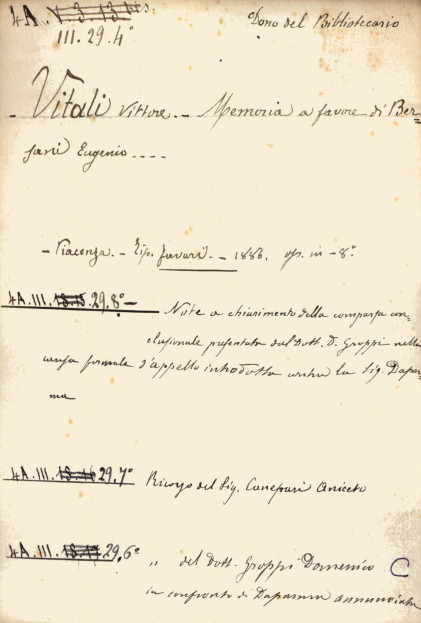 4A. V.3.13 bis.
Dono del Bibliotecario
III. 29.4°
- Vitali Vittore. - Memoria a favore di Ber=
sani Eugenio - - - -
- Piacenza. - Tip. Favari. - 1886. op. in - 8°.
4A. III. 29.8° - Note a chiarimento della comparsa con=
clusionale presentata dal Dott. D. Groppi nella
causa formale d'appello introdotta contro la Sig. Dapar=
ma
4A. III. 29.7° Ricorso del Sig. Canepari Aniceto
4A. III. 29.6° " del Dott. Groppi Domenico C
in confronto di Daparma annunciata